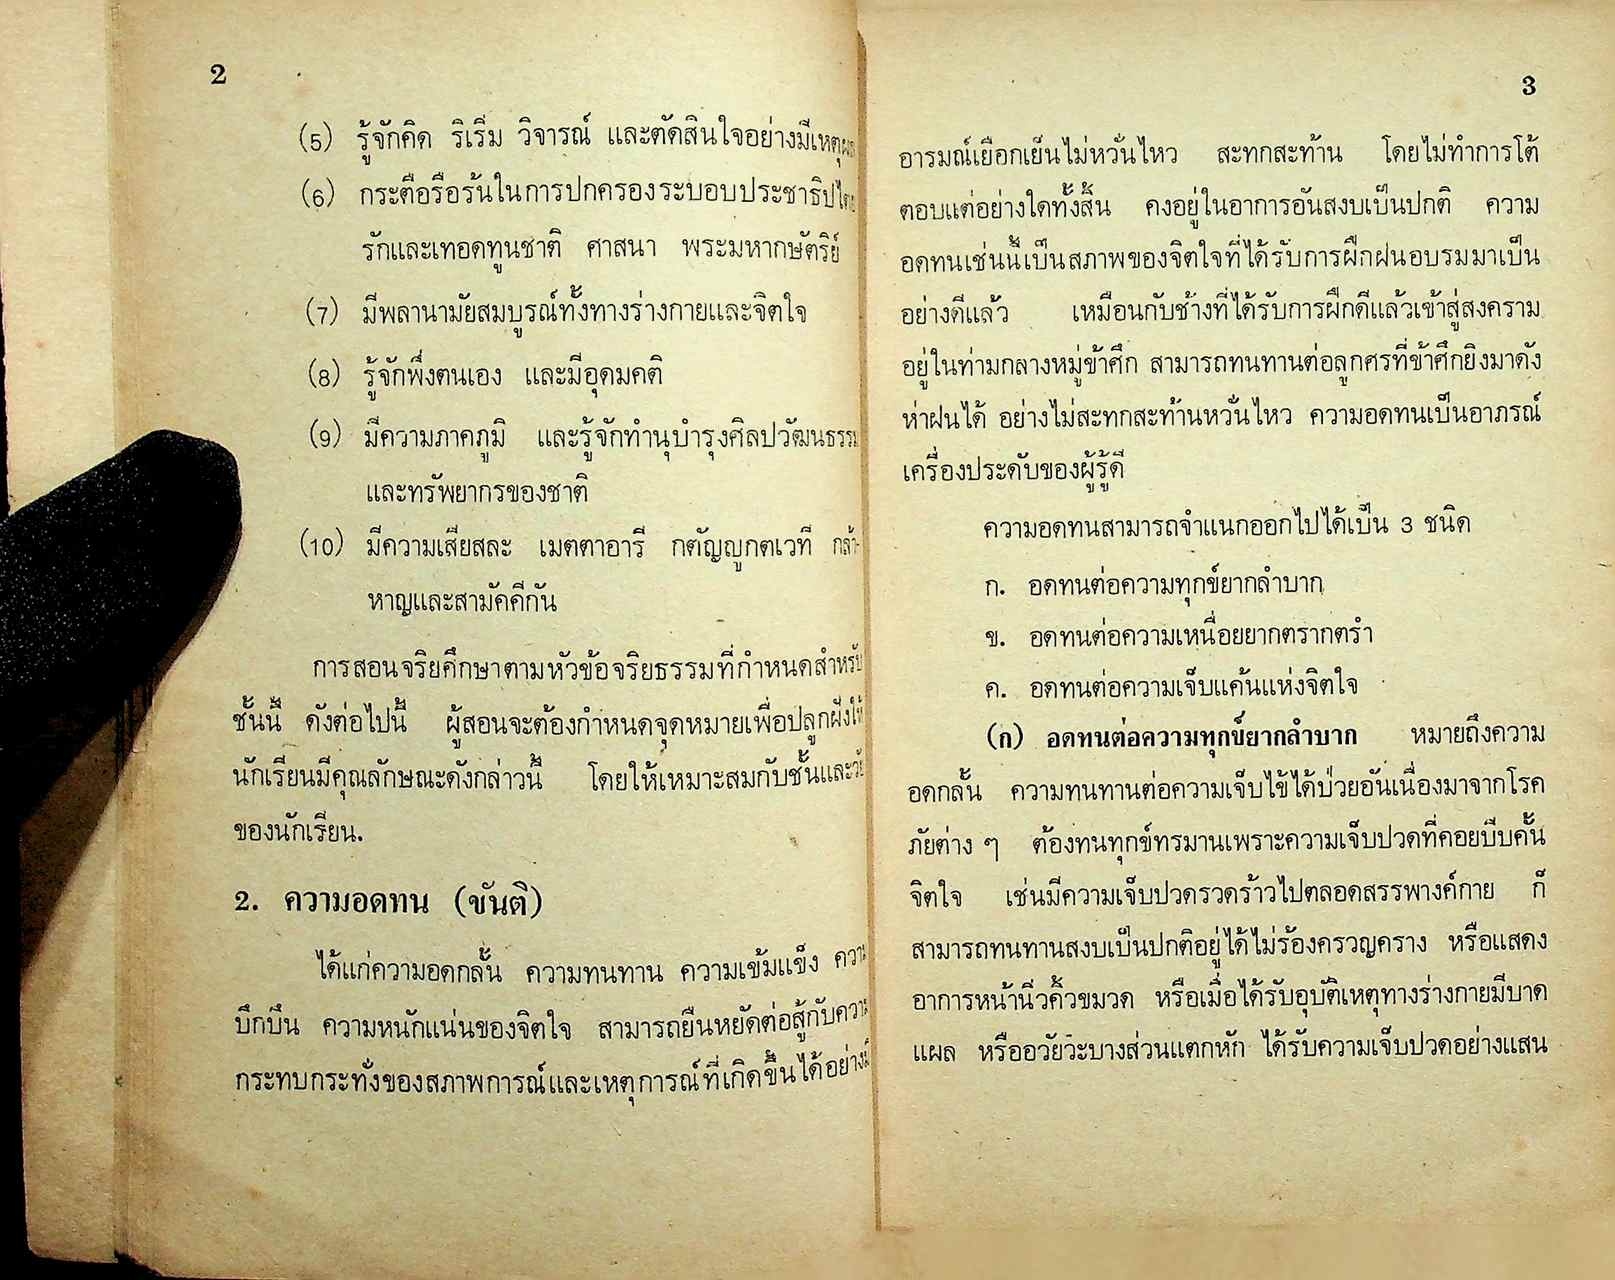 2
(5) รู้จักคิด ริเริ่ม วิจารณ์ และตัดสินใจอย่างมีเหตุผล
(6) กระตือรือร้นในการปกครองระบอบประชาธิปไตย
รักและเทอดทูนชาติ ศาสนา พระมหากษัตริย์
(7) มีพลานามัยสมบูรณ์ทั้งทางร่างกายและจิตใจ
(8) รู้จักพึ่งตนเอง และมีอุดมคติ
(9) มีความภาคภูมิ และรู้จักทำนุบำรุงศิลปวัฒนธรรม
และทรัพยากรของชาติ
(10) มีความเสียสละ เมตตาอารี กตัญญูกตเวที กล้า-
หาญและสามัคคีกัน
การสอนจริยศึกษาตามหัวข้อจริยธรรมที่กำหนดสำหรับ
ชั้นนี้ ดังต่อไปนี้ ผู้สอนจะต้องกำหนดจุดหมายเพื่อปลูกฝังให้
นักเรียนมีคุณลักษณะดังกล่าวนี้ โดยให้เหมาะสมกับชั้นและวัย
ของนักเรียน.
2. ความอดทน (ขันติ)
ได้แก่ความอดกลั้น ความทนทาน ความเข้มแข็ง ความ
บึกบึน ความหนักแน่นของจิตใจ สามารถยืนหยัดต่อสู้กับความ
กระทบกระทั่งของสภาพการณ์และเหตุการณ์ที่เกิดขึ้นได้อย่างมี
3
อารมณ์เยือกเย็นไม่หวั่นไหว สะทกสะท้าน โดยไม่ทำการโต้
ตอบแต่อย่างใดทั้งสิ้น คงอยู่ในอาการอันสงบเป็นปกติ ความ
อดทนเช่นนี้เป็นสภาพของจิตใจที่ได้รับการฝึกฝนอบรมมาเป็น
อย่างดีแล้ว เหมือนกับช้างที่ได้รับการฝึกดีแล้วเข้าสู่สงคราม
อยู่ในท่ามกลางหมู่ข้าศึก สามารถทนทานต่อลูกศรที่ข้าศึกยิงมาดัง
ห่าฝนได้ อย่างไม่สะทกสะท้านหวั่นไหว ความอดทนเป็นอาภรณ์
เครื่องประดับของผู้รู้ดี
ความอดทนสามารถจำแนกออกไปได้เป็น 3 ชนิด
ก. อดทนต่อความทุกข์ยากลำบาก
ข. อดทนต่อความเหนื่อยยากตรากตรำ
ค. อดทนต่อความเจ็บแค้นแห่งจิตใจ
(ก) อดทนต่อความทุกข์ยากลำบาก หมายถึงความ
อดกลั้น ความทนทานต่อความเจ็บไข้ได้ป่วยอันเนื่องมาจากโรค
ภัยต่าง ๆ ต้องทนทุกข์ทรมานเพราะความเจ็บปวดที่คอยบีบคั้น
จิตใจ เช่นมีความเจ็บปวดรวดร้าวไปตลอดสรรพางค์กาย ก็
สามารถทนทานสงบเป็นปกติอยู่ได้ไม่ร้องครวญคราง หรือแสดง
อาการหน้านิ่วคิ้วขมวด หรือเมื่อได้รับอุบัติเหตุทางร่างกายมีบาด
แผล หรืออวัยวะบางส่วนแตกหัก ได้รับความเจ็บปวดอย่างแสน